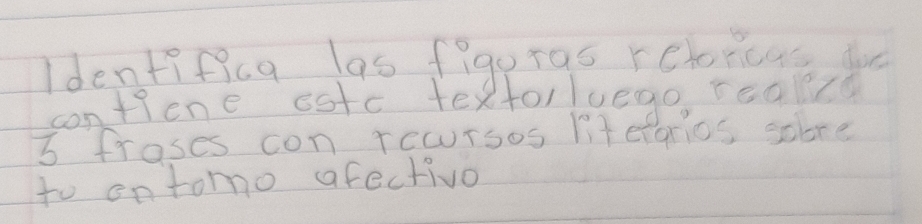 Identifica las figuras retoricas que
contiene este texto, luego realiza
5 frases con recursos literarios sobre
tu entorno afectivo